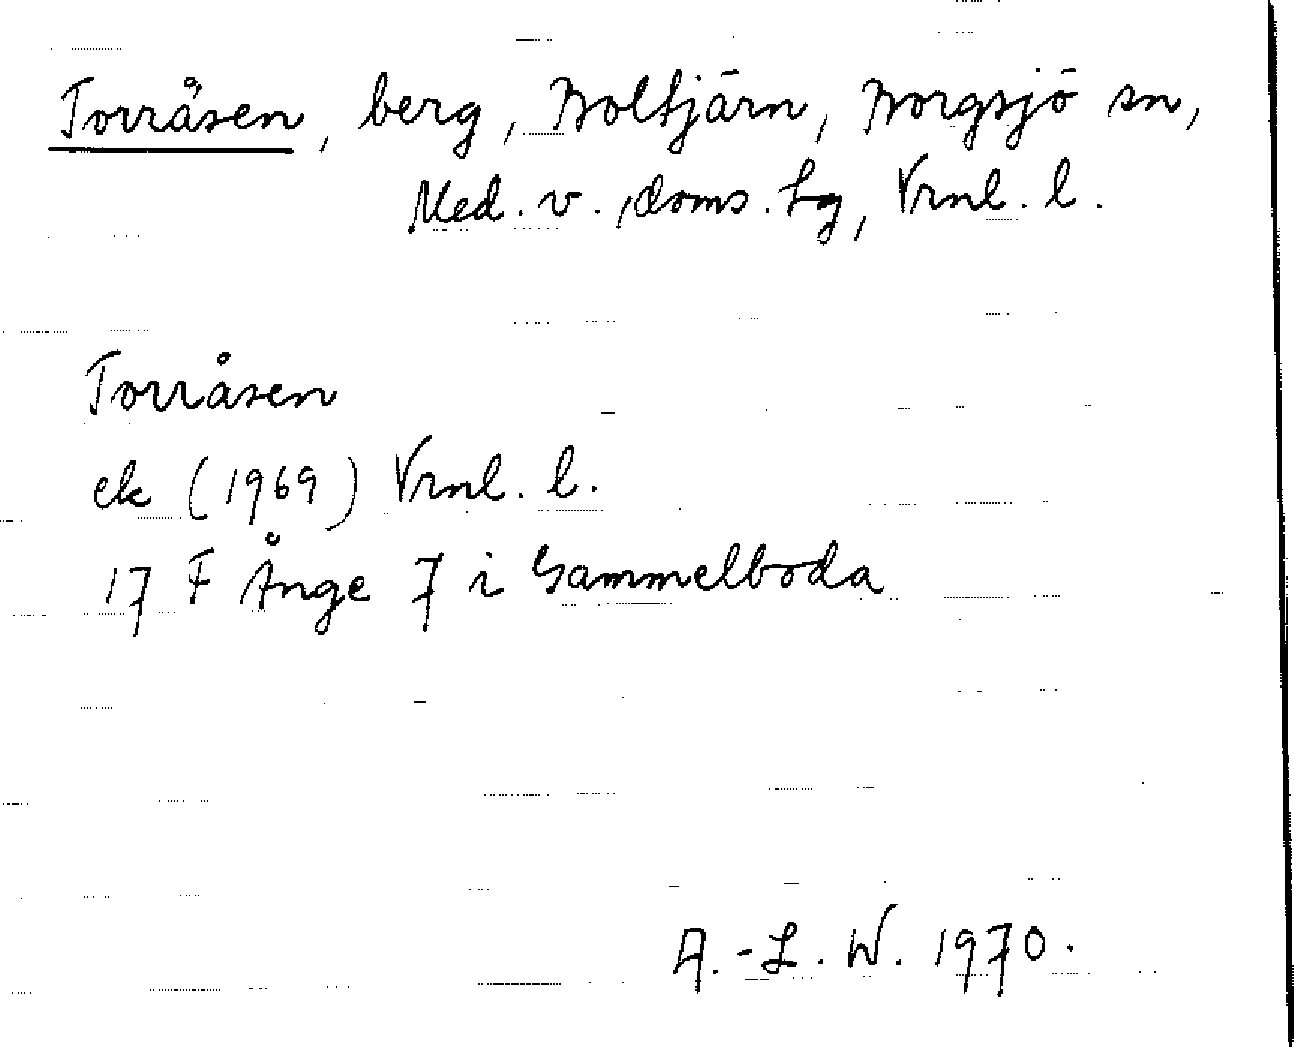 Torråsen, berg, Boltjärn, Borgsjö sn,
Med. v., doms. hg, Vrnl. l.
Torråsen
ek (1969) Vrnl. l.
17 F Ånge 7 i Gammelboda
A.-L. W. 1970.